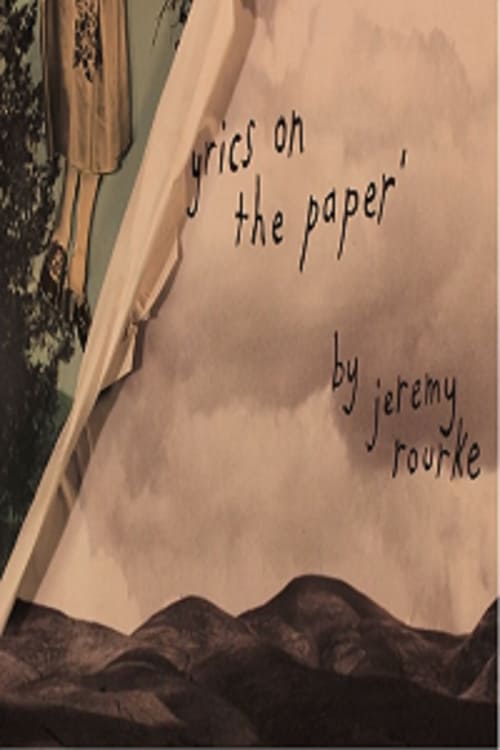 yrics on
the paper'
by
jeremy
rourke